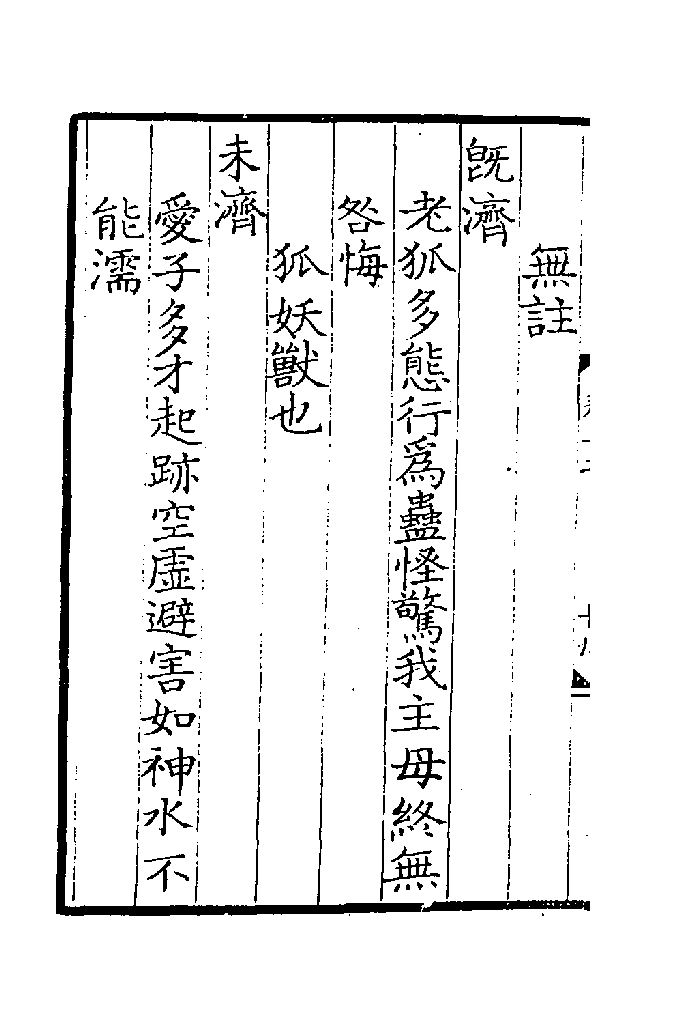 無註
旣濟
老狐多態行爲蠱怪驚我主母終無
咎悔
狐妖獸也
未濟
愛子多才起跡空虛避害如神水不
能濡